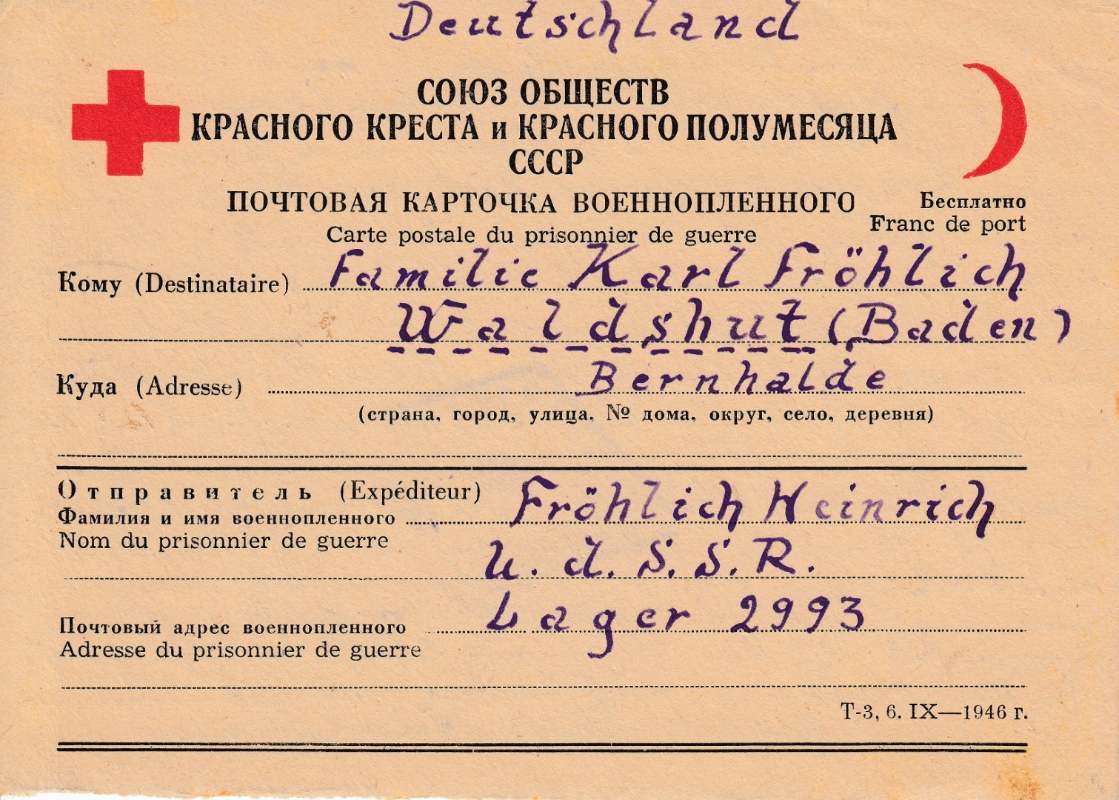 Deutschland
СОЮЗ ОБЩЕСТВ
КРАСНОГО КРЕСТА и КРАСНОГО ПОЛУМЕСЯЦА
СССР
ПОЧТОВАЯ КАРТОЧКА ВОЕННОПЛЕННОГО Бесплатно
Carte postale du prisonnier de guerre Franc de port
Кому (Destinataire) Familie Karl Fröhlich
Waldshut (Baden)
Куда (Adresse) Bernhalde
(страна, город, улица, № дома, округ, село, деревня)
Отправитель (Expéditeur) Fröhlich Heinrich
Фамилия и имя военнопленного
Nom du prisonnier de guerre
U. d. S. S. R.
Почтовый адрес военнопленного Lager 2993
Adresse du prisonnier de guerre
Т-3, 6. IX—1946 г.